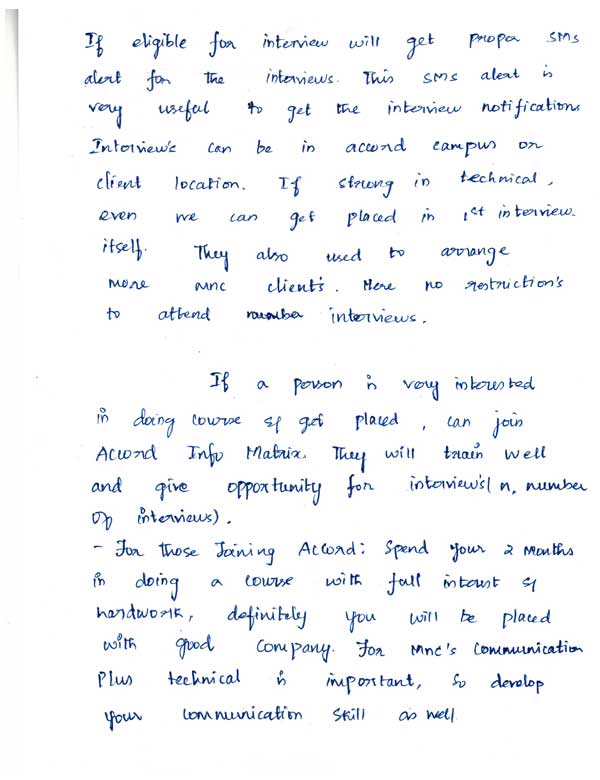 If eligible for interview will get proper SMS
alert for the interviews. This SMS alert is
very useful to get the interview notifications
Interview's can be in accord campus or
client location. If strong in technical,
even we can get placed in 1st interview
itself. They also used to arrange
more mnc client's. Here no restriction's
to attend interviews.
If a person is very interested
in doing course & get placed, can join
Accord Info Matrix. They will train well
and give opportunity for interview's( n, number
of interviews).
- For those Joining Accord: Spend your 2 Months
in doing a course with full interest &
hardwork, definitely you will be placed
with good company. For Mnc's Communication
Plus technical is important, so develop
your communication skill as well.